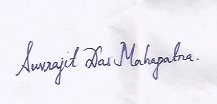 Suvrajit Das Mahapatra.